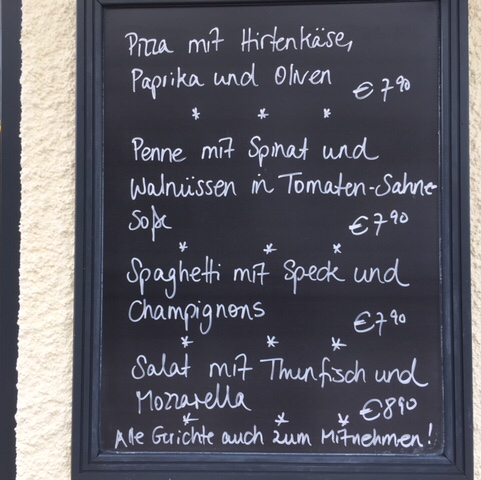 Pizza mit Hirtenkäse,
Paprika und Oliven
€ 7 90
* * *
Penne mit Spinat und
Walnüssen in Tomaten-Sahne
Soße € 7 90
* * *
Spaghetti mit Speck und
Champignons
€ 7 90
* * *
Salat mit Thunfisch und
Mozzarella € 8 90
* * *
Alle Gerichte auch zum Mitnehmen!